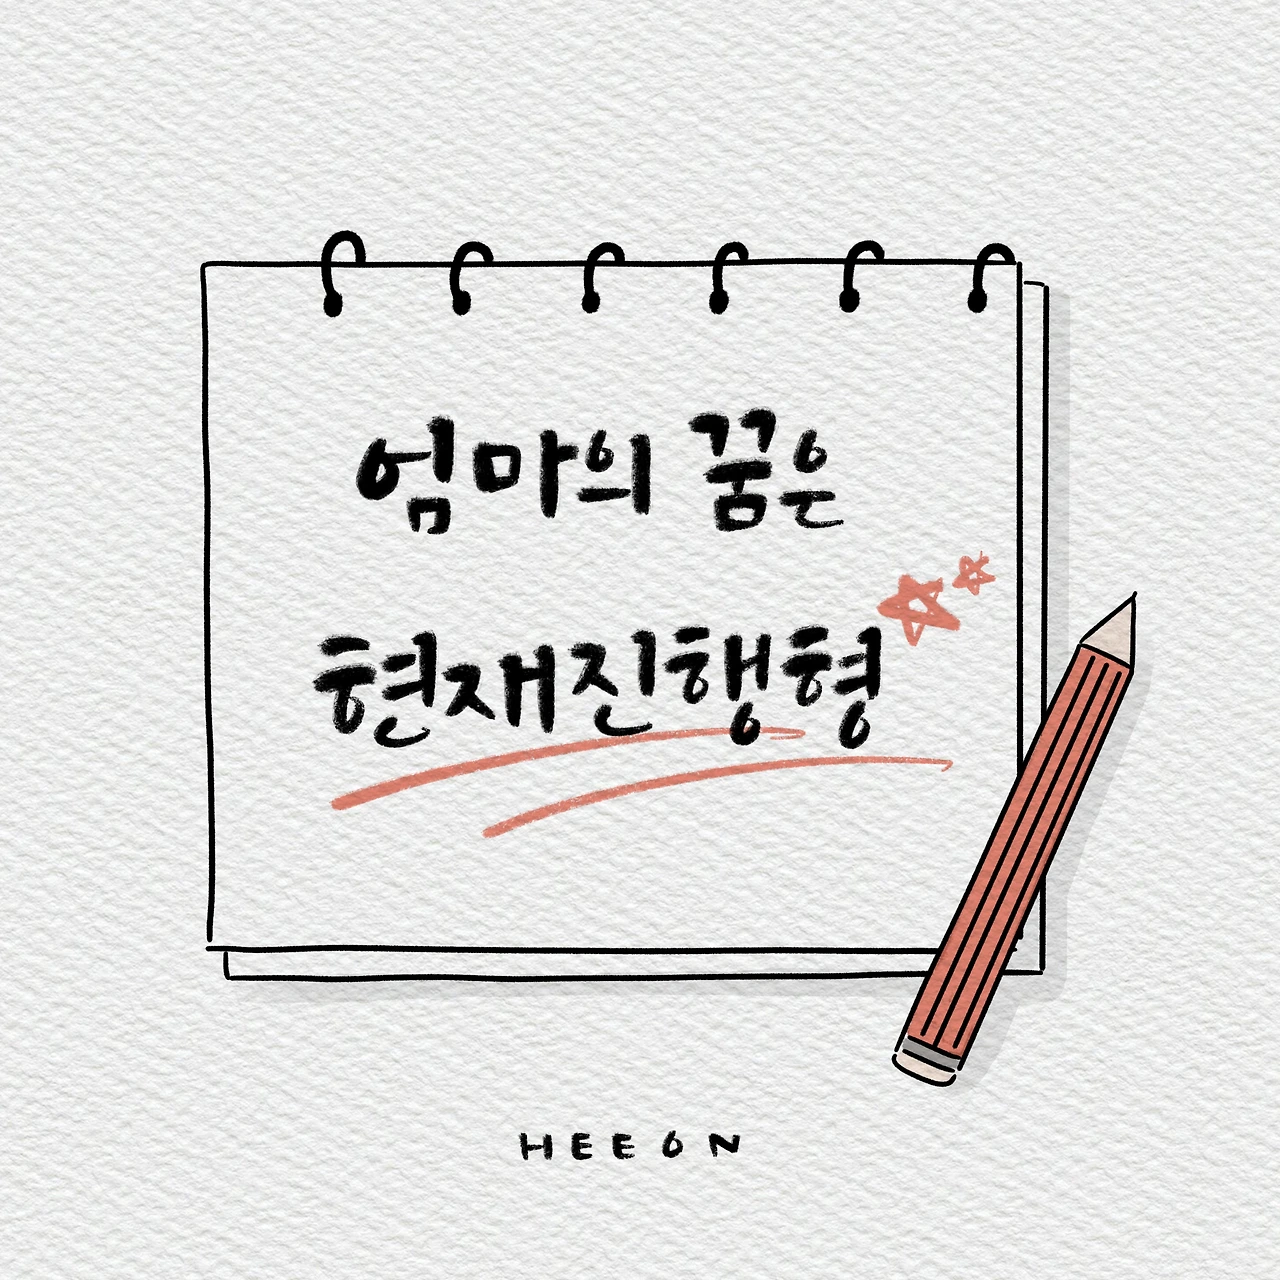 엄마의 꿈은
현재진행형
HEEON